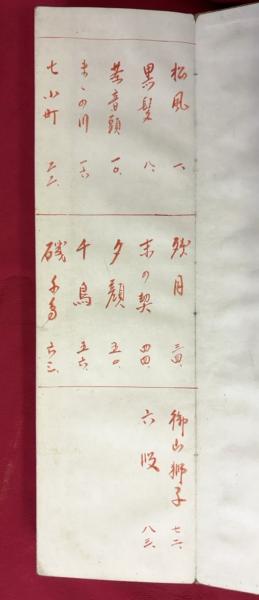 松風 一、
黒髪 八、
茶音頭 一〇、
まゝの川 一六、
七小町 二二、
残月 三四、
末の契 四四、
夕顔 五〇、
千鳥 五六、
磯千鳥 六三、
御山獅子 七二、
六段 八三、